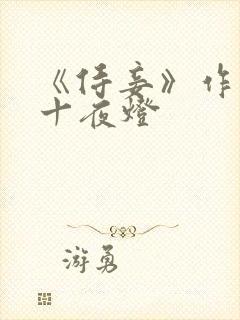 《侍妾》作
十夜燈
游勇